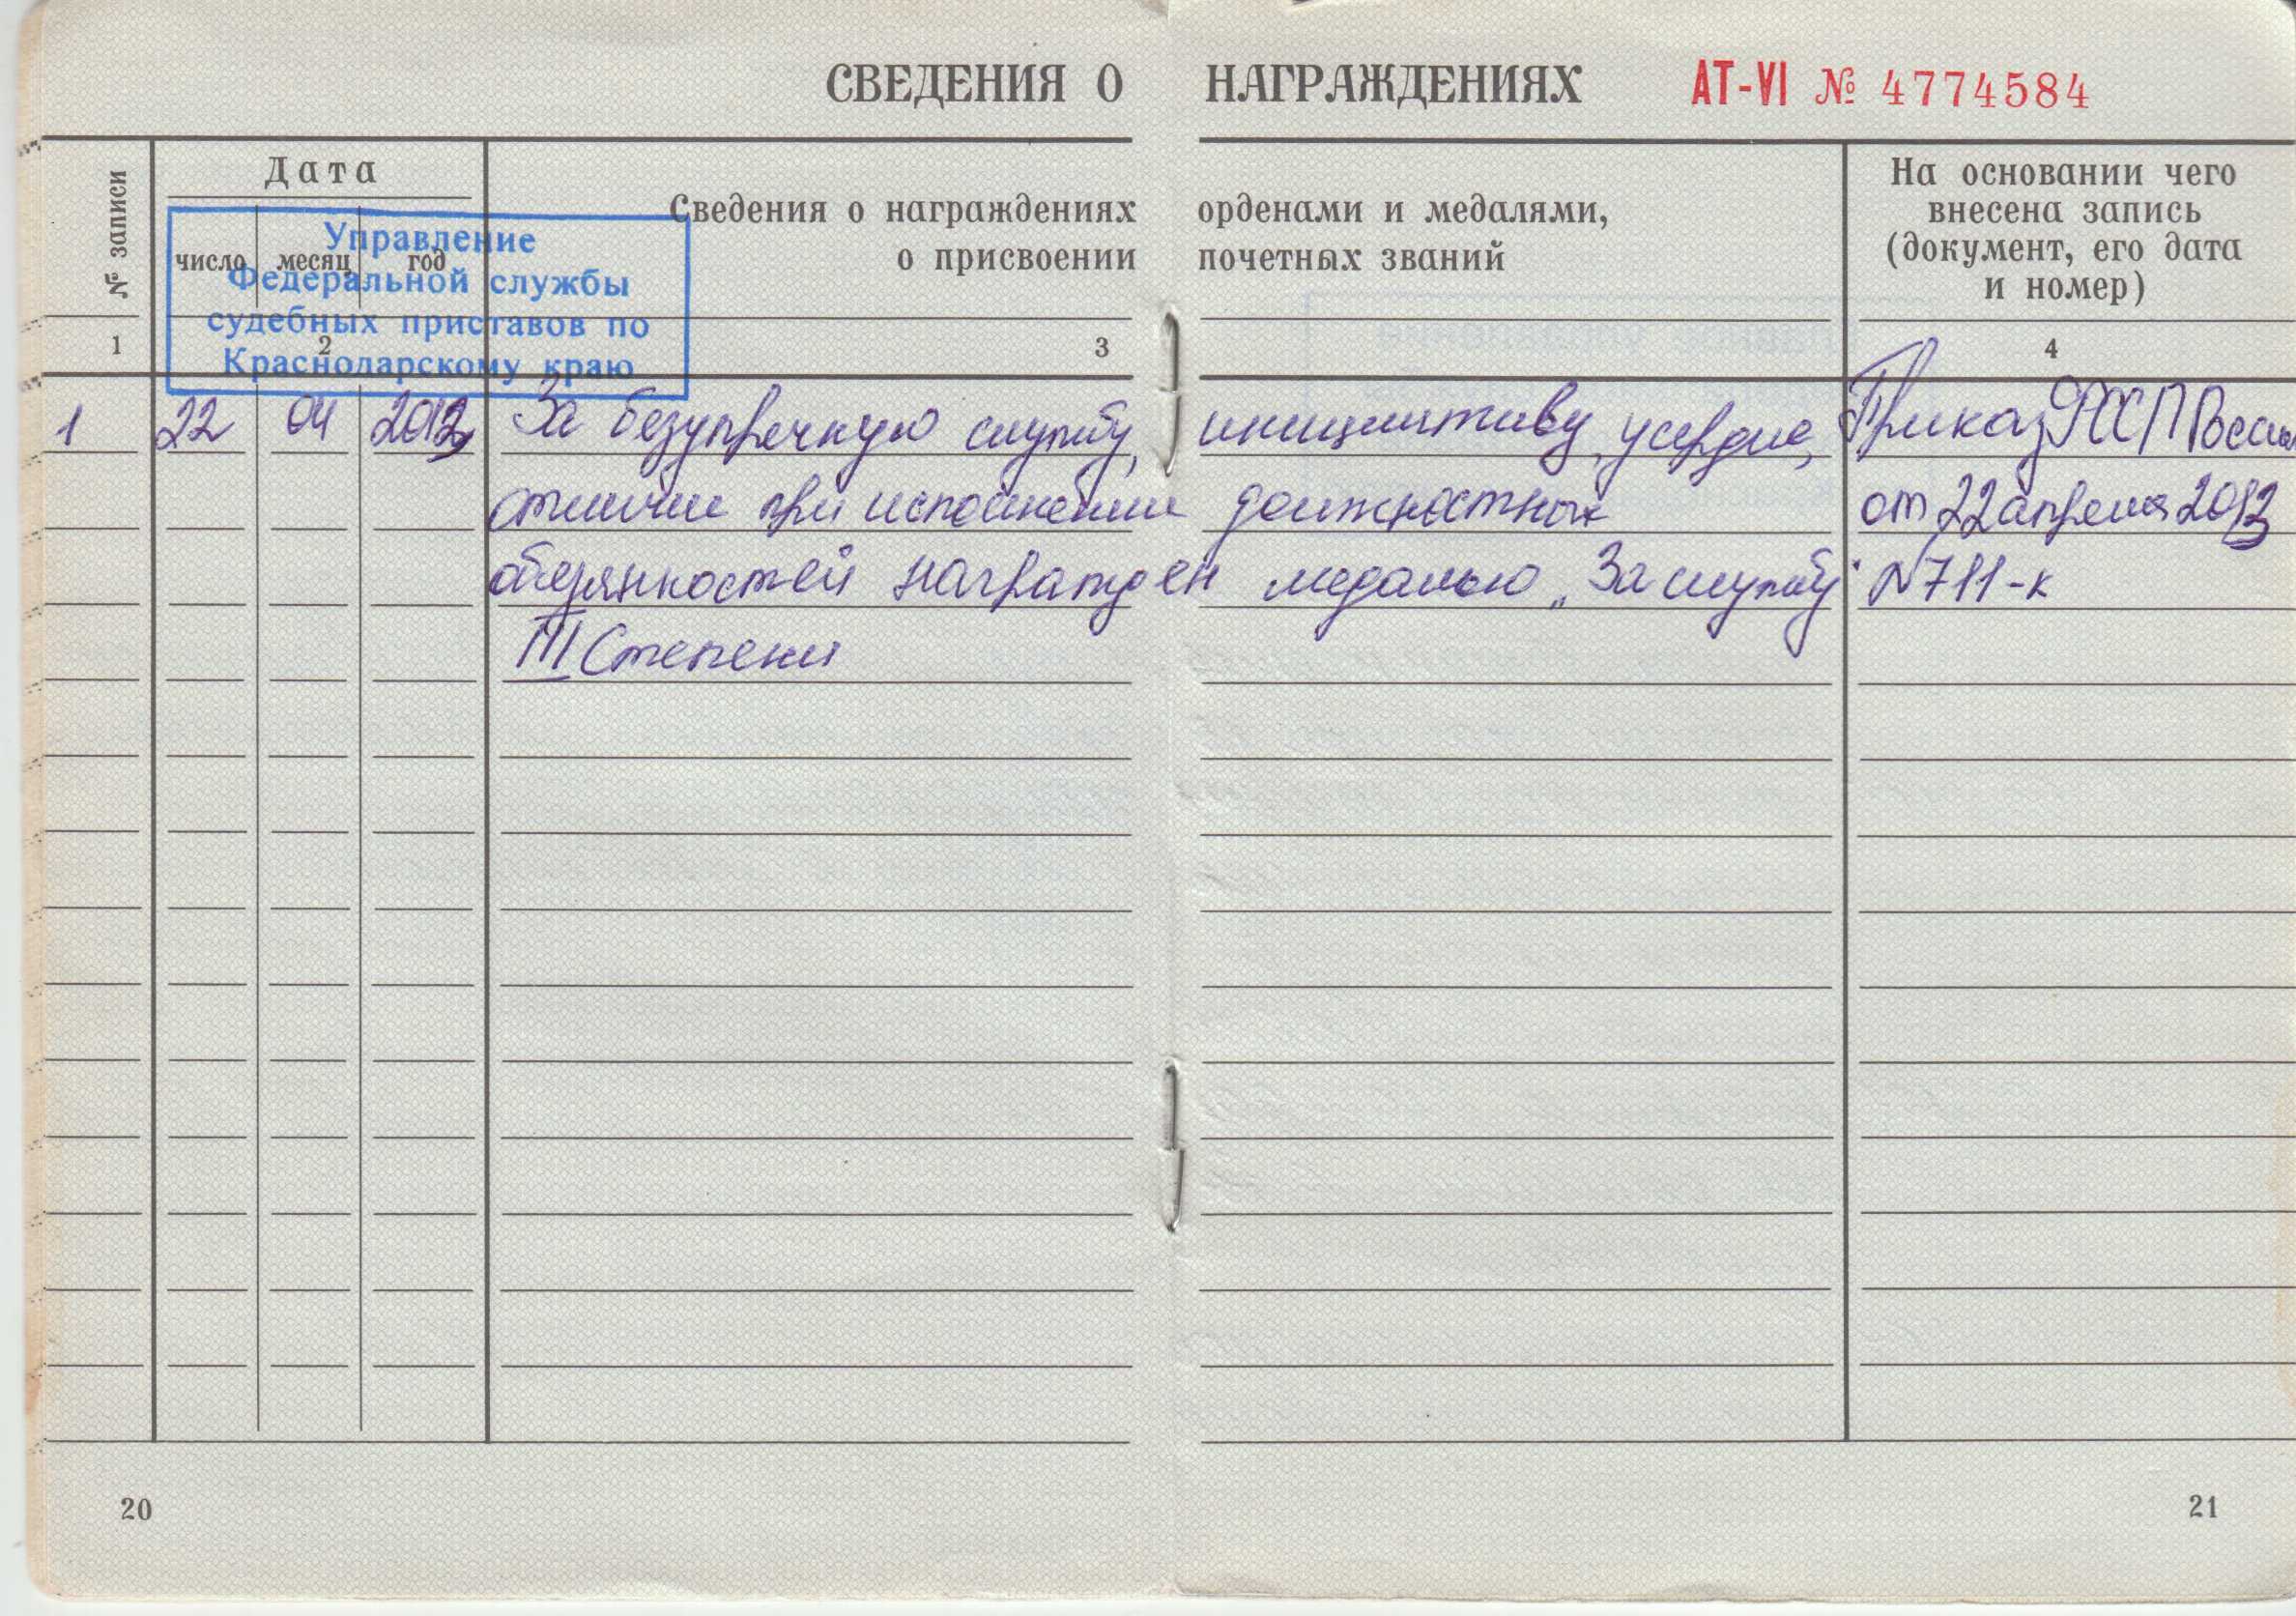 СВЕДЕНИЯ О НАГРАЖДЕНИЯХ АТ-VI № 4774584
№ записи
Дата
число месяц год
Сведения о награждениях орденами и медалями,
о присвоении почетных званий
На основании чего
внесена запись
(документ, его дата
и номер)
Управление
Федеральной службы
судебных приставов по
Краснодарскому краю
1 2 3 4
1 22 04 За безупречную службу, инициативу, усердие, Приказ ФССП России
отличие при исполнении должностных от 22 апреля
обязанностей награжден медалью „За службу" N 711-к
III Степени
20 21